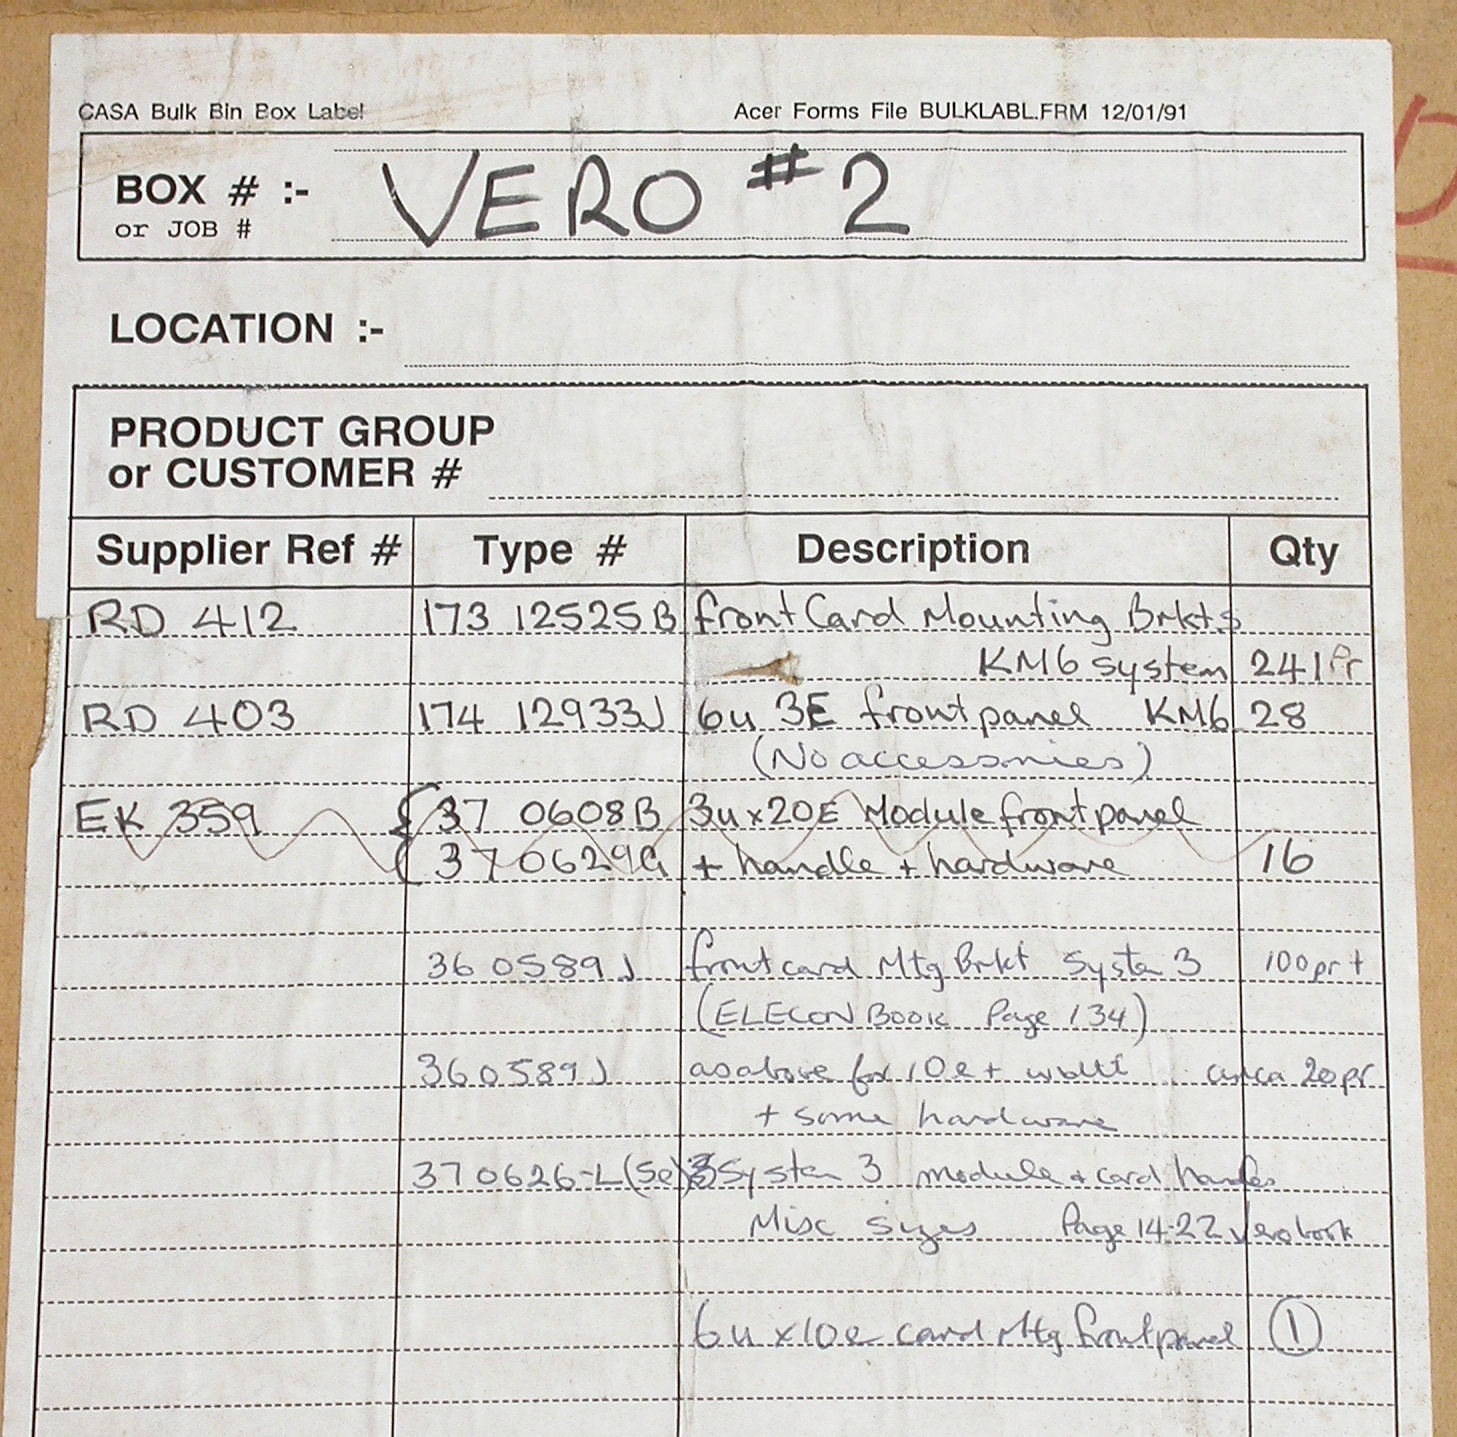 CASA Bulk Bin Box Label Acer Forms File BULKLABL.FRM 12/01/91
BOX # :- VERO #2
or JOB #
LOCATION :-
PRODUCT GROUP
or CUSTOMER #
Supplier Ref # Type # Description Qty
RD 412 173 12525B front Card Mounting Brkts
KM6 system 241 Pr
RD 403 174 12933J 6u 3E front panel KM6 28
(No accessories)
EK 359 { 37 0608B 3u x 20E Module front panel
37 0629G + handle + hardware 16
36 0589J front card Mtg Brkt System 3 100pr +
(ELECON BOOK Page 134)
360589J as above for 10e + width circa 20pr
+ some hardware
370626-L(Se) System 3 module + card handles
Misc sizes Page 14-22 Vero book
6u x 10e card Mtg front panel 1